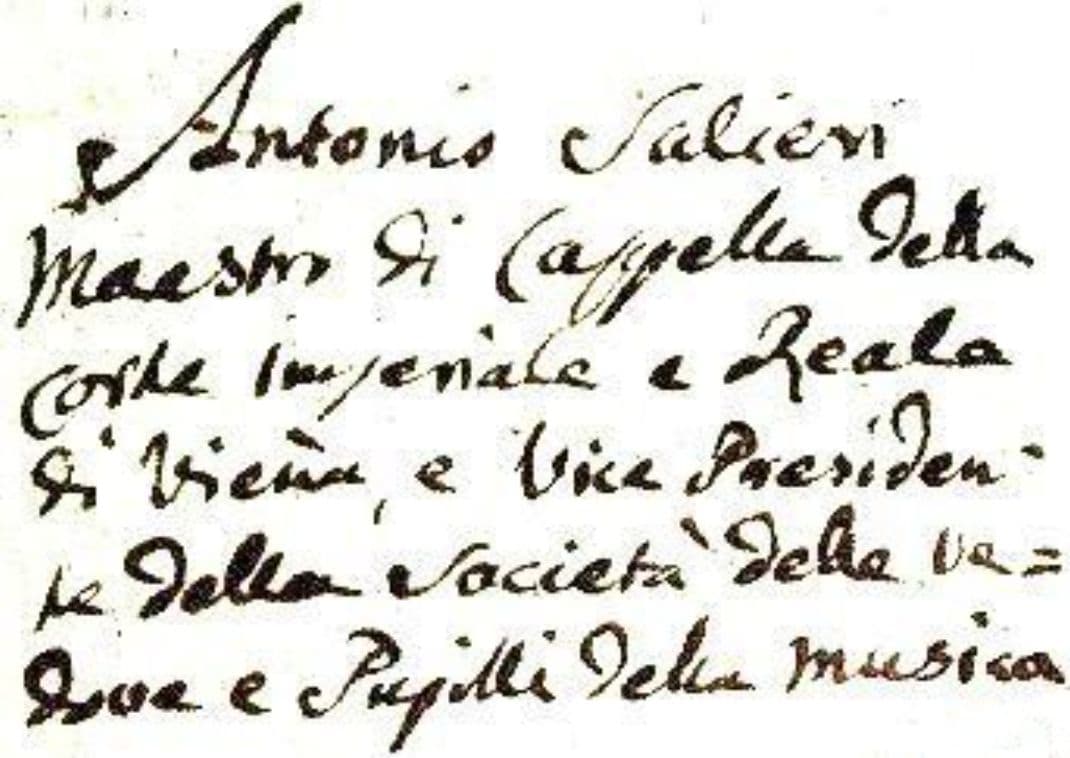 Antonio Salieri
Maestro di Cappella della
Corte Imperiale e Reale
di Vieña, e Vice Presiden-
te della Società delle ve=
dove e Pupilli della musica